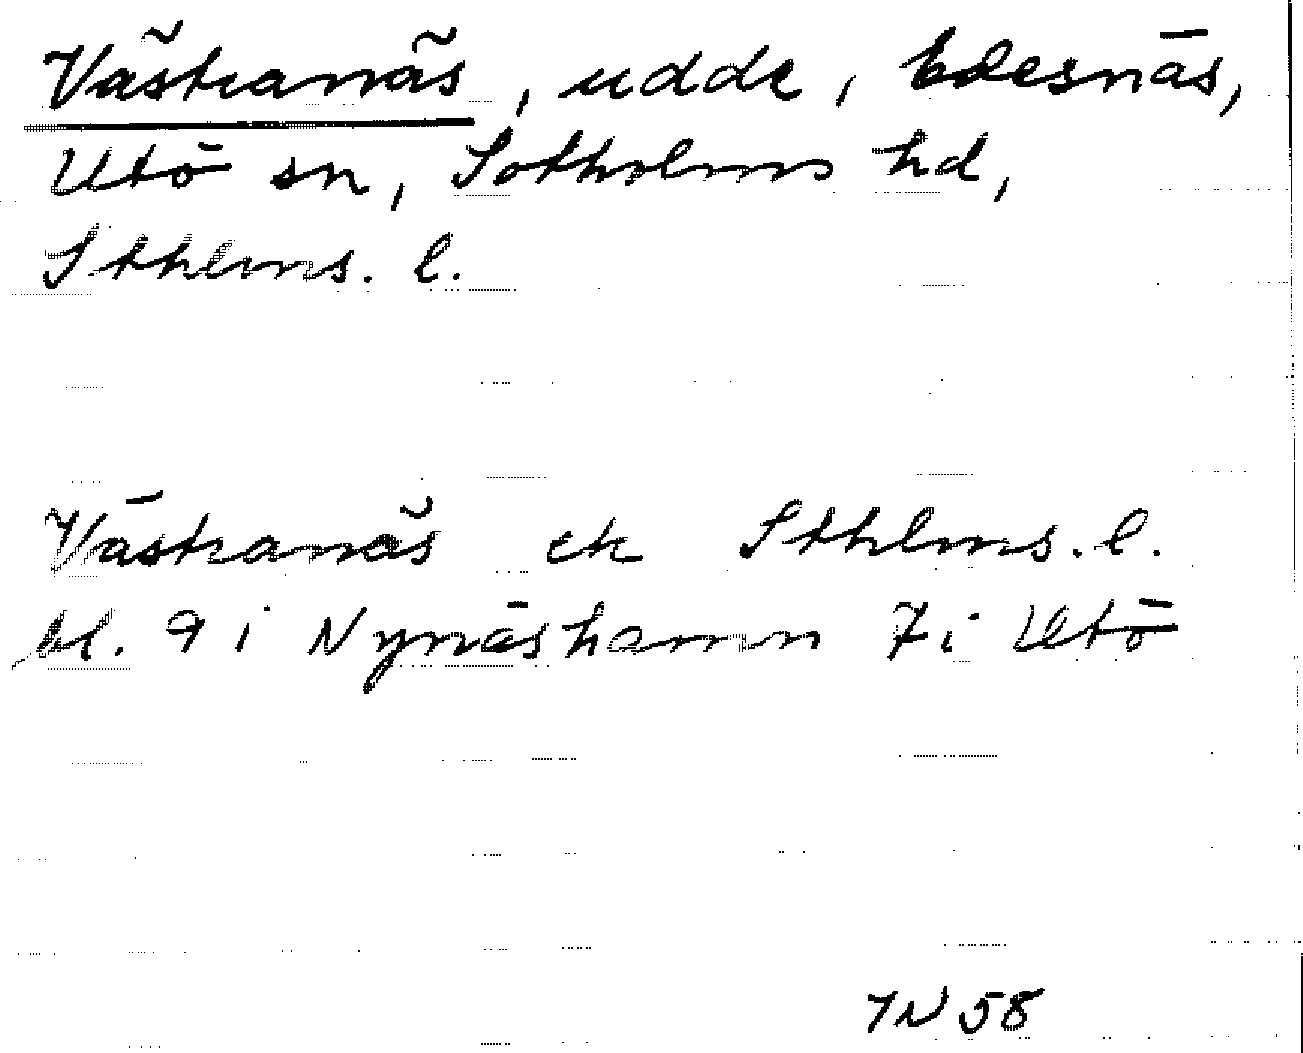 Västranäs, udde, Edesnäs,
Utö sn, Sotholms hd,
Sthlms. l.
Västranäs ek Sthlms. l.
bl. 9 i Nynäshamn 7 i Utö
IN 58